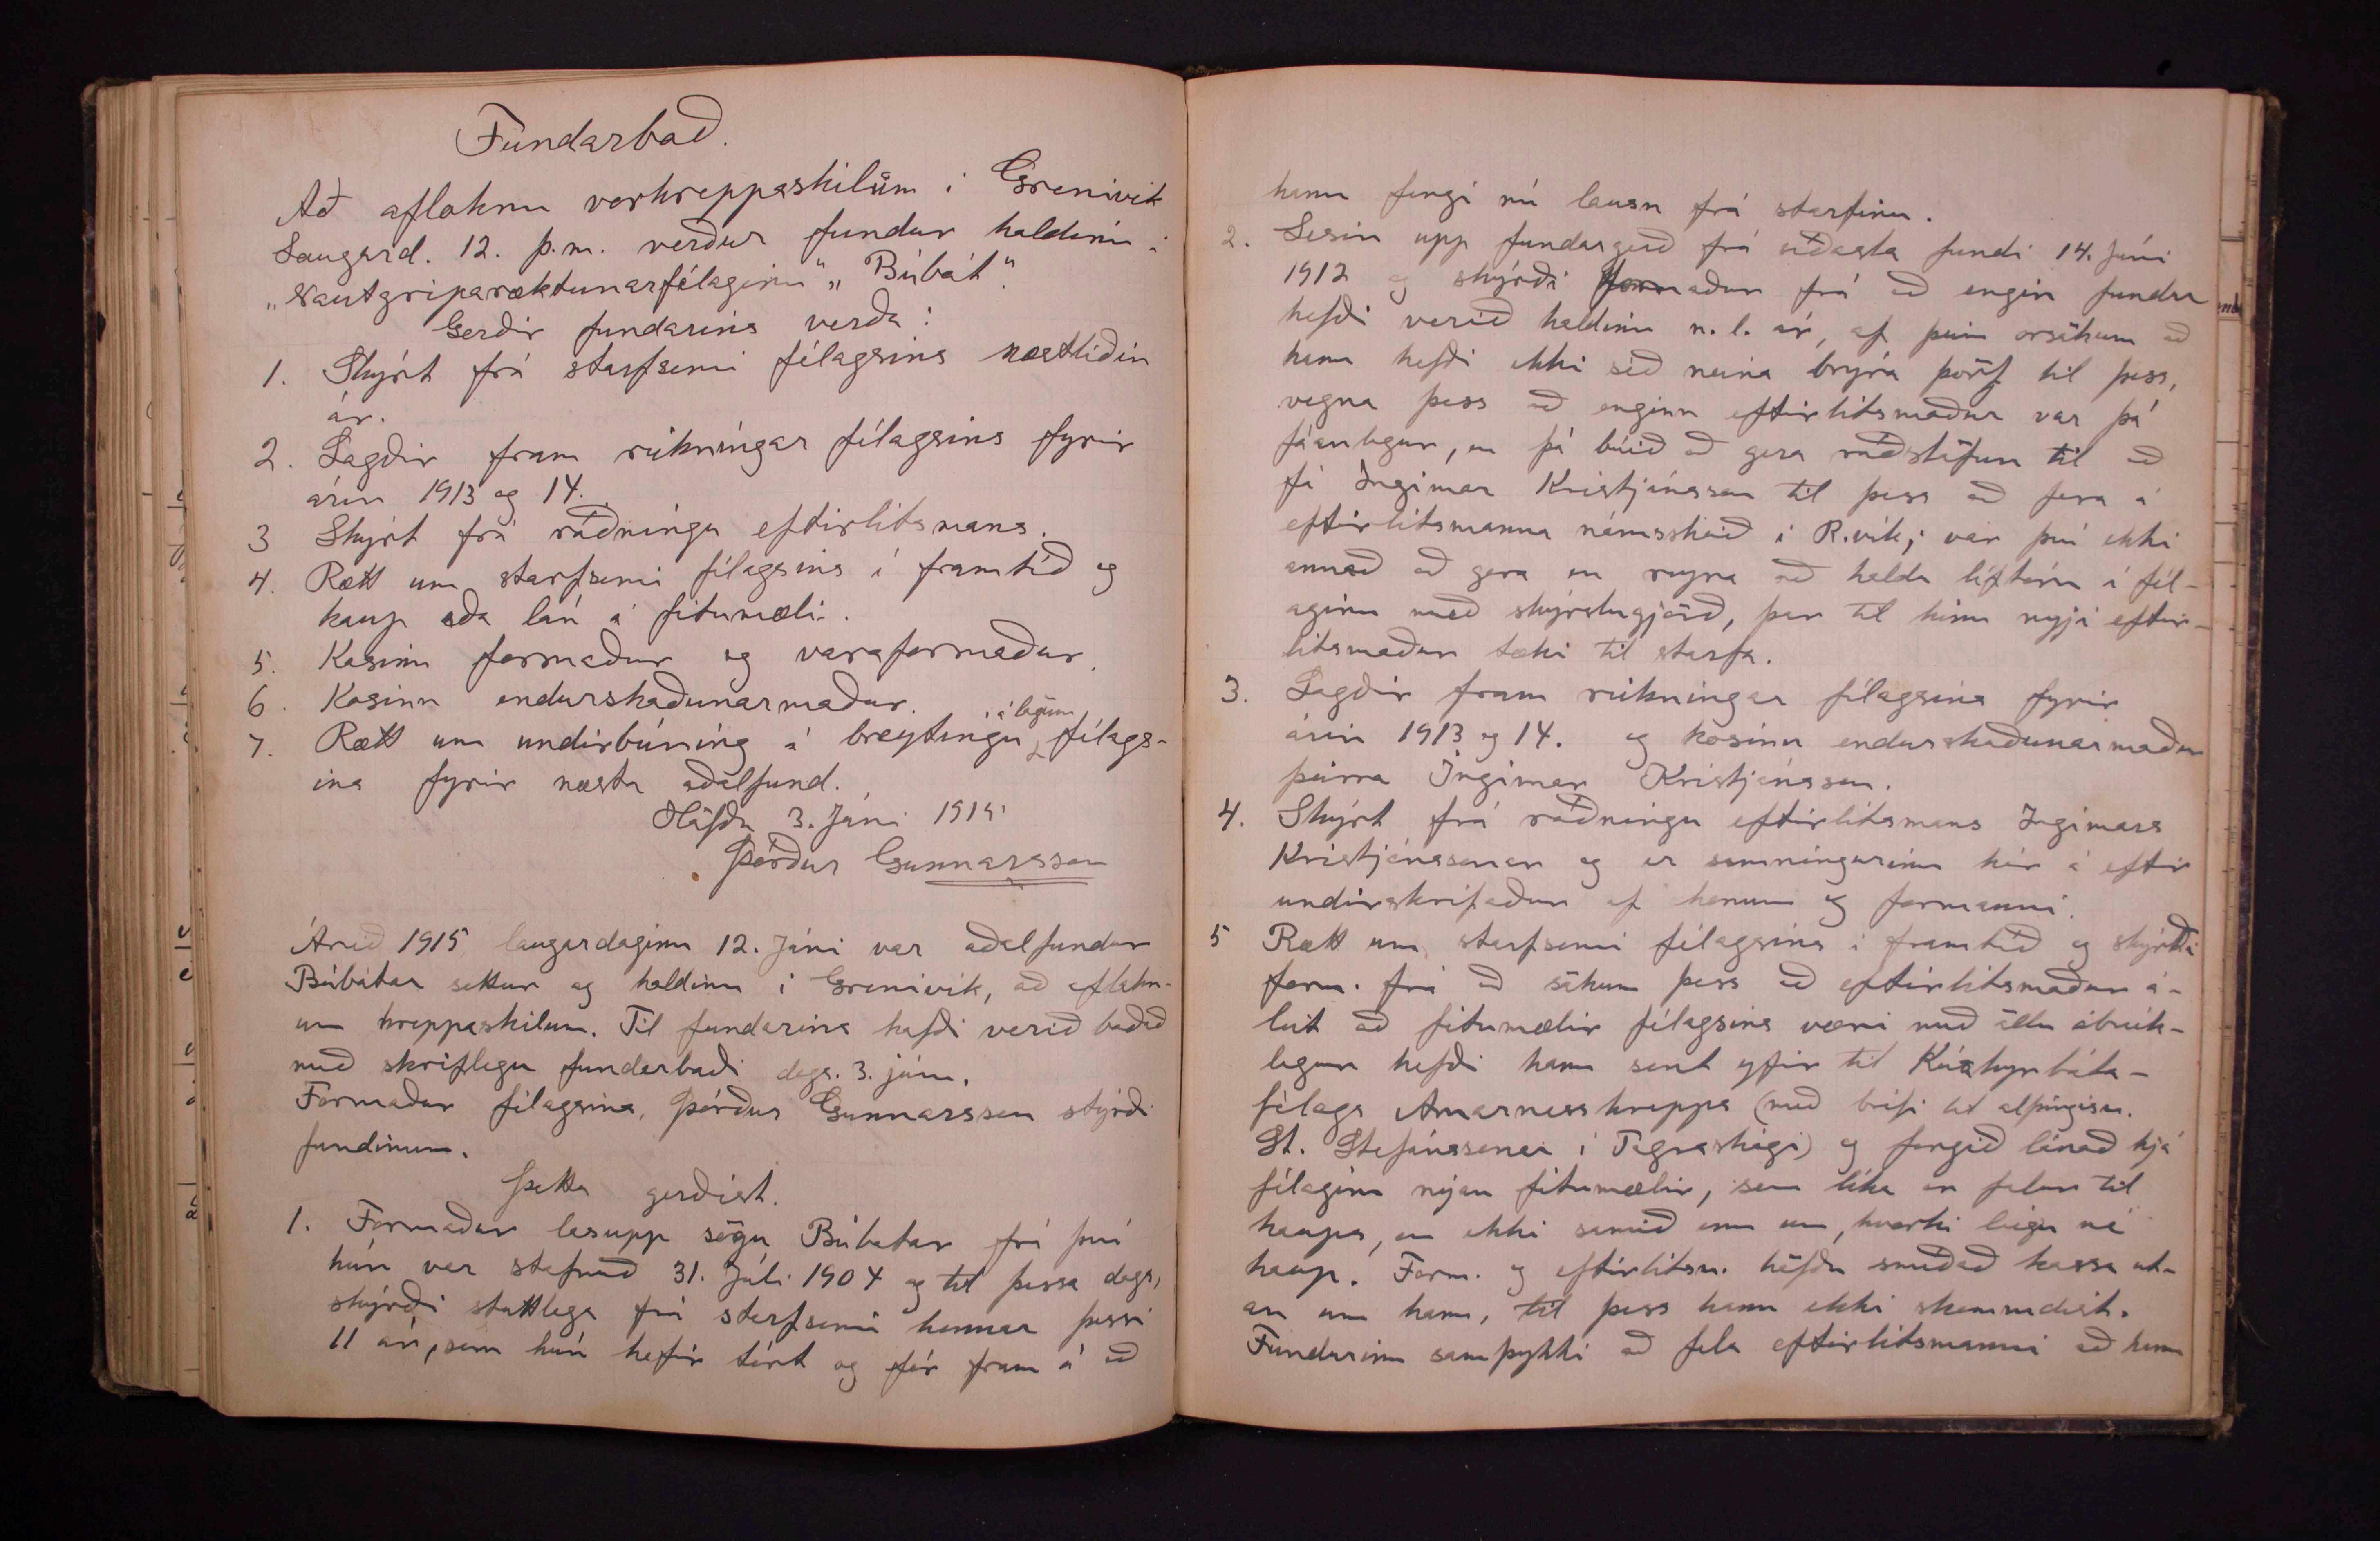 Fundarboð.
Að afloknu vorhreppaskilum í Grenivík
Laugard. 12. þ.m. verður fundur haldinn í
„Nautgriparæktunarfélaginu" „Búbót".
Gerðir fundarins verða:
1. Skýrt frá starfsemi félagsins næstliðin
ár.
2. Lagðir fram reikningar félagsins fyrir
árin 1913 og 14.
3 Skýrt frá ráðningu eftirlitsmans.
4. Rætt um starfsemi félagsins í framtíð og
kaup eða lán á fitumæli.
5. Kosinn formaður og varaformaður.
6. Kosinn endurskoðunarmaður.
7. Rætt um undirbúning á breytingu á lögum félags-
ins fyrir næsta aðalfund.
Höfða 3. Júni 1915
Þórður Gunnarsson
Árið 1915, laugardaginn 12. Júni var aðalfundur
Búbótar settur og haldinn í Grenivík, að aflokn-
um hreppaskilum. Til fundarins hafði verið boðað
með skriflegu fundarboði dags. 3. júni.
Formaður félagsins, Þórður Gunnarsson stýrði
fundinum.
Þetta gerðist.
1. Formaður las upp sögu Búbótar frá því
hún var stofnuð 31. Júli 1904 og til þessa dags,
skýrði stuttlega frá starfsemi hennar þessi
11 ár, sem hún hefir tórt og fór fram á að
hann fengi nú lausn frá starfinu.
2. Lesin upp fundargerð frá síðasta fundi 14. Júni
1912 og skýrði formaður frá að engin fundur
hefði verið haldinn n. l. ár, af þeim orsökum að
hann hefði ekki séð neina brýna þörf til þess,
vegna þess að enginn eftirlitsmaður var þá
fáanlegur, en þá búið að gera ráðstöfun til að
fá Ingimar Kristjánsson til þess að fara á
eftirlitsmanna námsskeið í R.vík; var því ekki
annað að gera en reyna að halda líftóru í fél-
aginu með skýrslugjörð, þar til hinn nyji eftir-
litsmaður tæki til starfa.
3. Lagðir fram reikningar félagsins fyrir
árin 1913 og 14. og kosinn endurskoðunarmaður
þeirra Ingimar Kristjánsson.
4. Skýrt frá ráðningu eftirlitsmans Ingimars
Kristjánssonar og er samningurinn hér á eftir
undirskrifaður af honum og formanni.
5 Rætt um starfsemi félagsins í framtíð og skýrði
form. frá að sökum þess að eftirlitsmaður á-
leit að fitumælir félagsins væri með öllu óbrúk-
legur hefði hann sent yfir til Kúakynbóta-
félags Arnarnesshrepps (með bréfi til alþingism.
St. Stefánssonar í Fagraskógi) og fengið lánað hjá
félaginu nýjan fitumælir, sem líka er falur til
kaups, en ekki samið enn um, hvorki leigu né
kaup. Form. og eftirlitsm. höfðu smíðað kassa ut-
an um hann, til þess hann ekki skemmdist.
Fundurinn samþykkti að fela eftirlitsmanni að hann